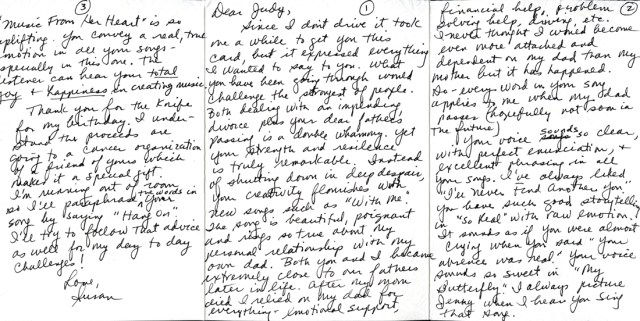 ①
Dear Judy,
Since I don't drive it took
me a while to get you this
card, but it expressed everything
I wanted to say to you. What
you have been going through would
challenge the strongest of people.
Both dealing with an impending
divorce plus your dear father's
passing is a double whammy. Yet
your strength and resilience
is truly remarkable. Instead
of shutting down in deep despair,
your creativity flourishes with
new songs such as "With Me."
The song is beautiful, poignant
and rings so true about my
personal relationship with my
own dad. Both you and I became
extremely close to our fathers
later in life. After my mom
died I relied on my dad for
everything - emotional support,
②
financial help, problem
solving help, driving, etc.
I never thought I would become
even more attached and
dependent on my dad than my
mother but it has happened.
So - every word in your song
applies to me when my dad
passes (hopefully not soon in
the future)
Your voice sounds so clear,
with perfect enunciation, +
excellent phrasing in all
your songs. I've always liked
"I'll Never Find Another You".
You have such good storytelling
in "So Real" with raw emotion.
It sounds as if you were almost
crying when you said "your
absence was real." Your voice
sounds so sweet in "My
Butterfly". I always picture
Jenny when I hear you sing
that song.
③
"Music From Her Heart" is so
uplifting. You convey a real, true
emotion in all your songs -
especially in this one. The
listener can hear your total
joy + happiness in creating music.
Thank you for the Knife
for my birthday. I under-
stand the proceeds are
going to a cancer organization
of a friend of yours which
makes it a special gift.
I'm running out of room
so I'll paraphrase your words in
song by saying "Hang On"
I'll try to follow that advice
as well for my day to day
challenges!
Love,
Susan